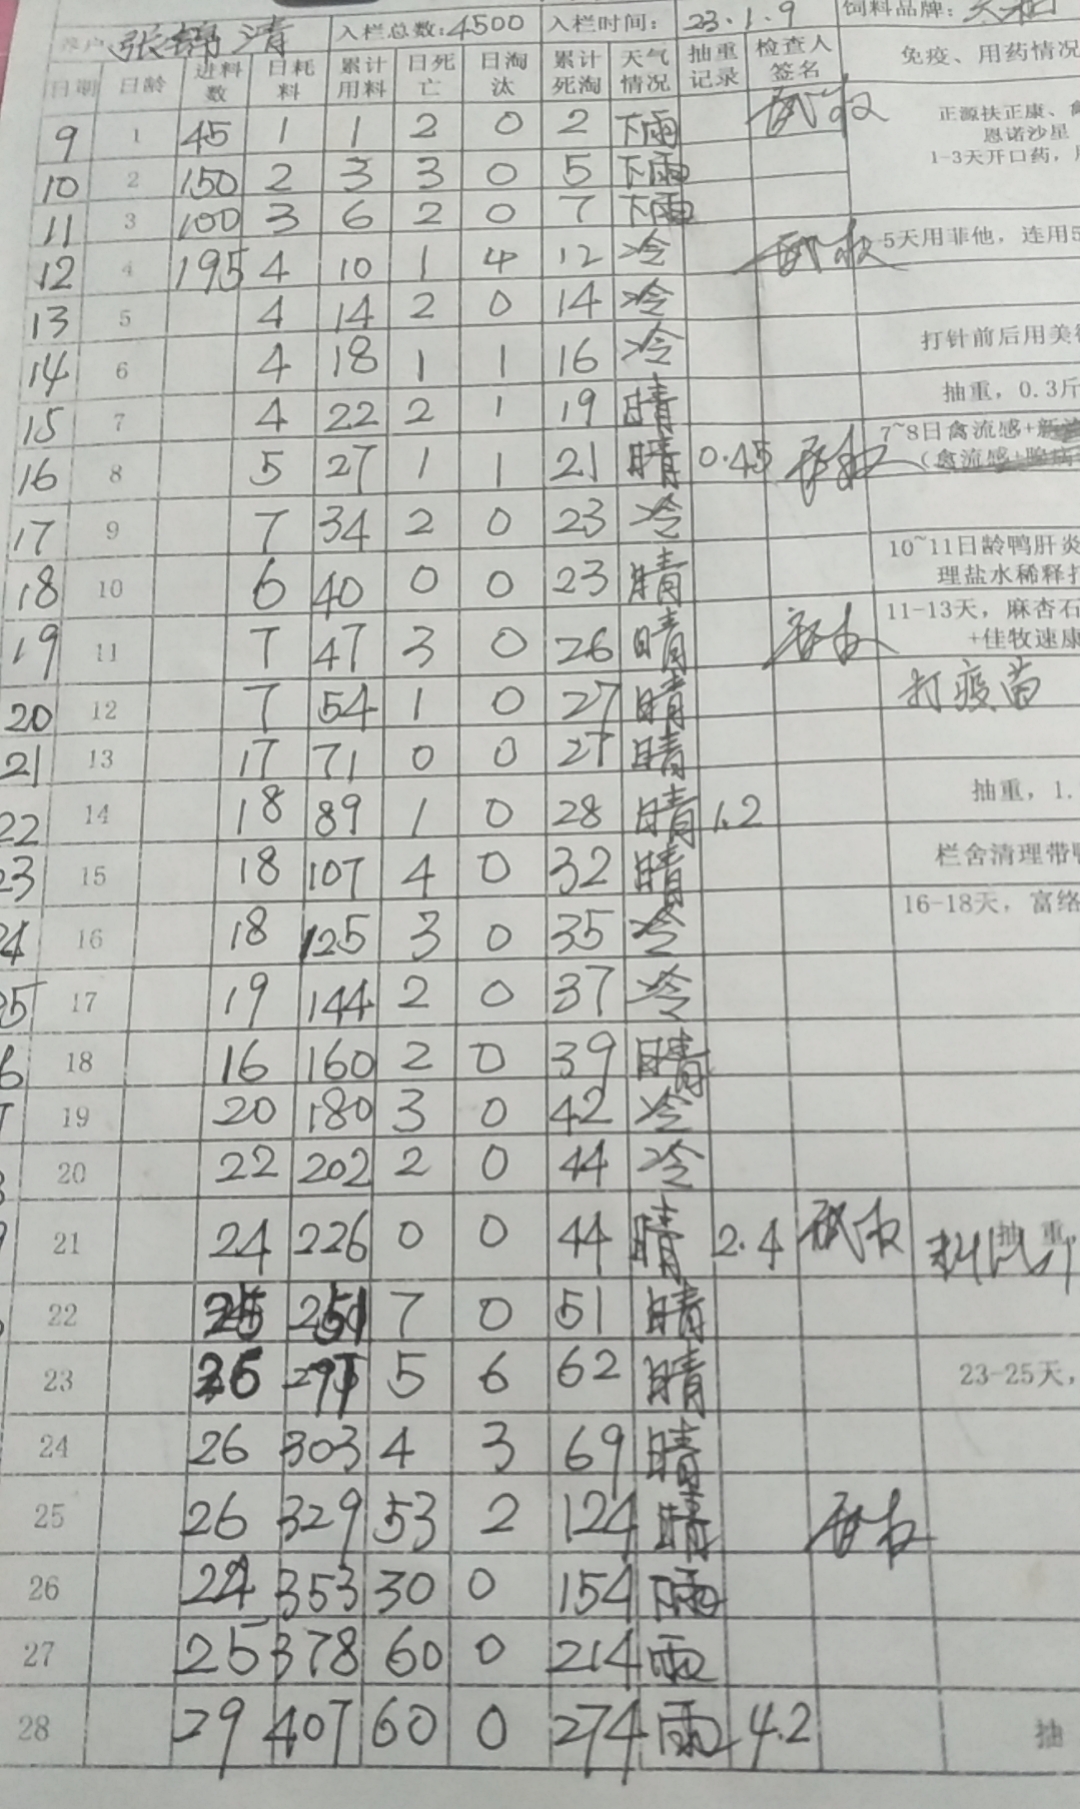 养户 张锦清 入栏总数:4500 入栏时间: 23.1.9 饲料品牌:
日期 日龄 进料数 日耗料 累计用料 日死亡 日淘汰 累计死淘 天气情况 抽重记录 检查人签名 免疫、用药情况
9 1 45 1 1 2 0 2 下雨 正源扶正康、
恩诺沙星
1-3天开口药,
10 2 150 2 3 3 0 5 下雨
11 3 100 3 6 2 0 7 下雨
12 4 195 4 10 1 4 12 冷 5天用菲他，连用5
13 5 4 14 2 0 14 冷
14 6 4 18 1 1 16 冷 打针前后用美
15 7 4 22 2 1 19 晴 抽重，0.3斤
16 8 5 27 1 1 21 晴 0.45 7~8日禽流感+
(禽流感+腺病
17 9 7 34 2 0 23 冷
18 10 6 40 0 0 23 晴 10~11日龄鸭肝炎
理盐水稀释打
19 11 7 47 3 0 26 晴 11-13天，麻杏石
+佳牧速康
20 12 7 54 1 0 27 晴 打疫苗
21 13 17 71 0 0 27 晴
22 14 18 89 1 0 28 晴 1.2 抽重，1.
23 15 18 107 4 0 32 晴 栏舍清理带
24 16 18 125 3 0 35 冷 16-18天，富络
25 17 19 144 2 0 37 冷
6 18 16 160 2 0 39 晴
19 20 180 3 0 42 冷
20 22 202 2 0 44 冷
21 24 226 0 0 44 晴 2.4 抽重
22 25 251 7 0 51 晴
23 26 277 5 6 62 晴 23-25天，
24 26 303 4 3 69 晴
25 26 329 53 2 124 晴
26 24 353 30 0 154 下雨
27 25 378 60 0 214 雨
28 29 407 60 0 274 雨 4.2 抽